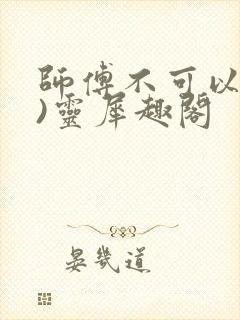 師傅不可以
)靈犀趣閣
晏幾道